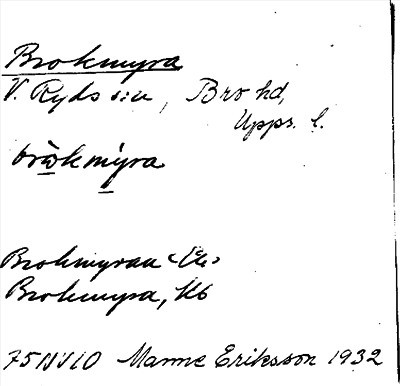 Brokmyra
V. Ryds sn, Bro hd,
Upps. l.
brὼkmy�́ra
Brokmyran <Ek>
Brokmyra, Kb
75NV10 Manne Eriksson 1932